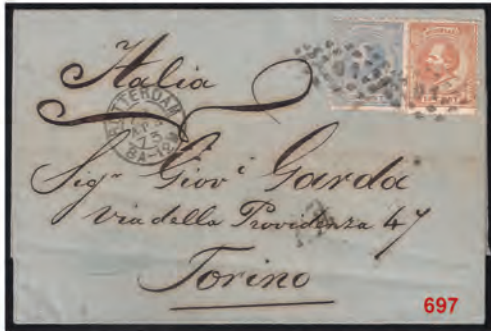 Italia
ROTTERDAM
AP
75
8A-12
Sigr Giovi Garda
Via della Providenza 47
Torino
697